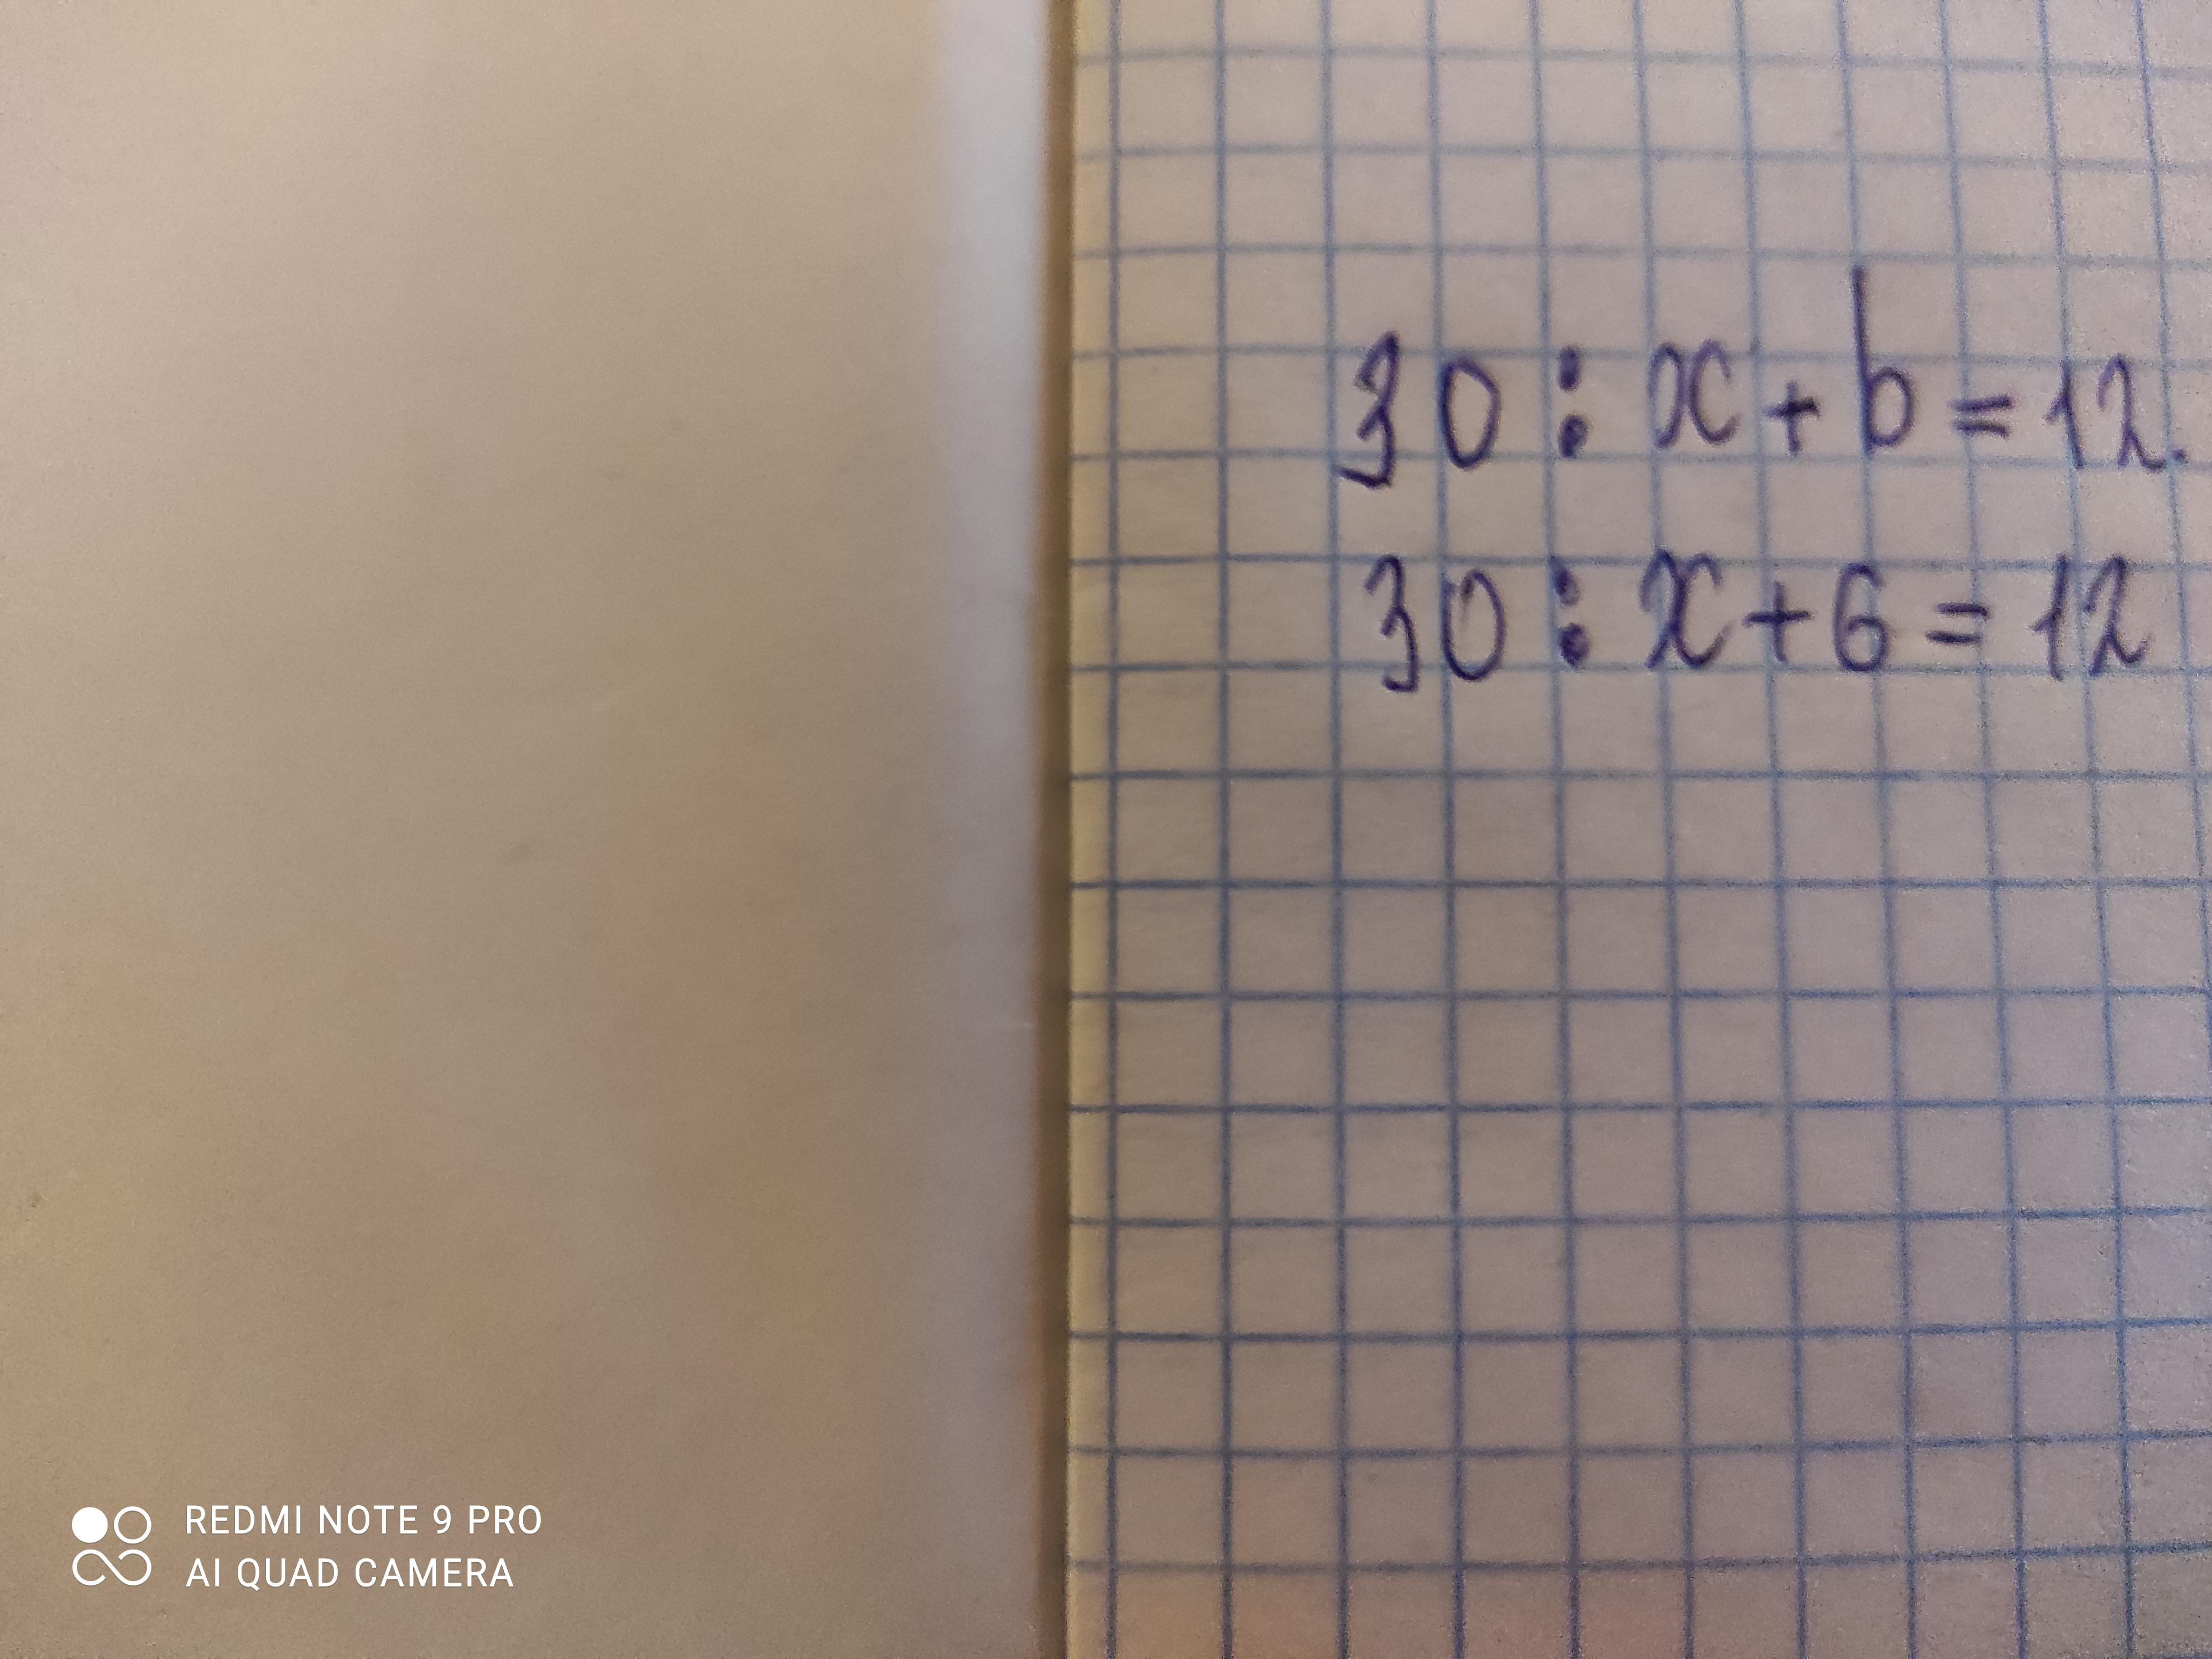 30 : x + b = 12.
30 : x + 6 = 12
REDMI NOTE 9 PRO
AI QUAD CAMERA